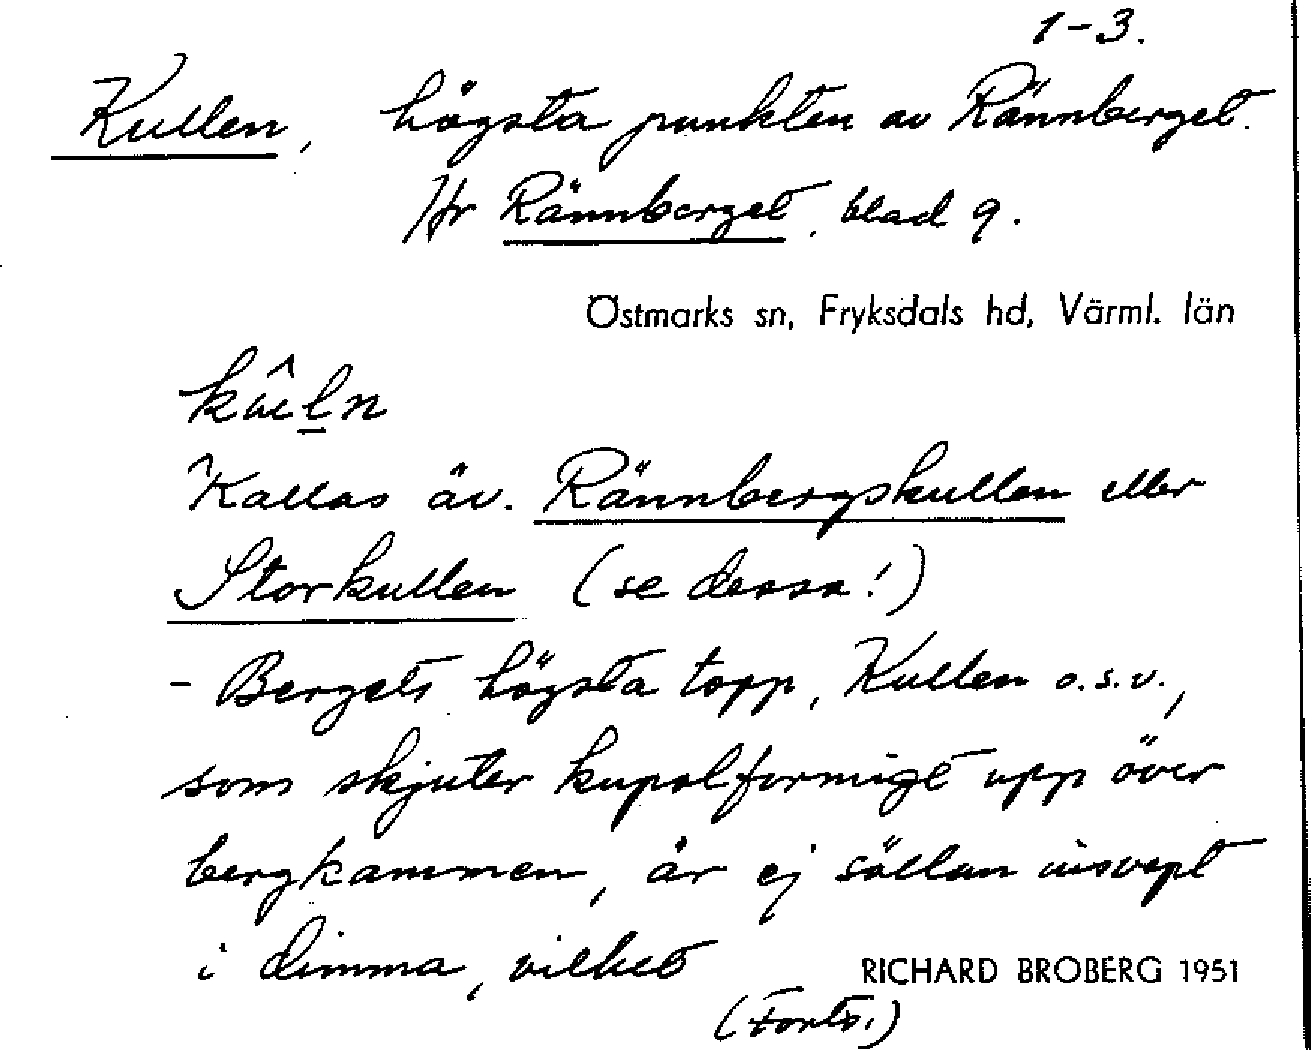 1-3.
Kullen, högsta punkten av Rännberget.
Hr Rännberget, blad 9.
Östmarks sn, Fryksdals hd, Värml. län
Kallas äv. Rännbergskullen eller
Storkullen (se dessa!)
- Bergets högsta topp, Kullen o.s.v.,
som skjuter kupolformigt upp över
bergkammen, är ej sällan insvept
i dimma, vilket
RICHARD BROBERG 1951
(Forts.)